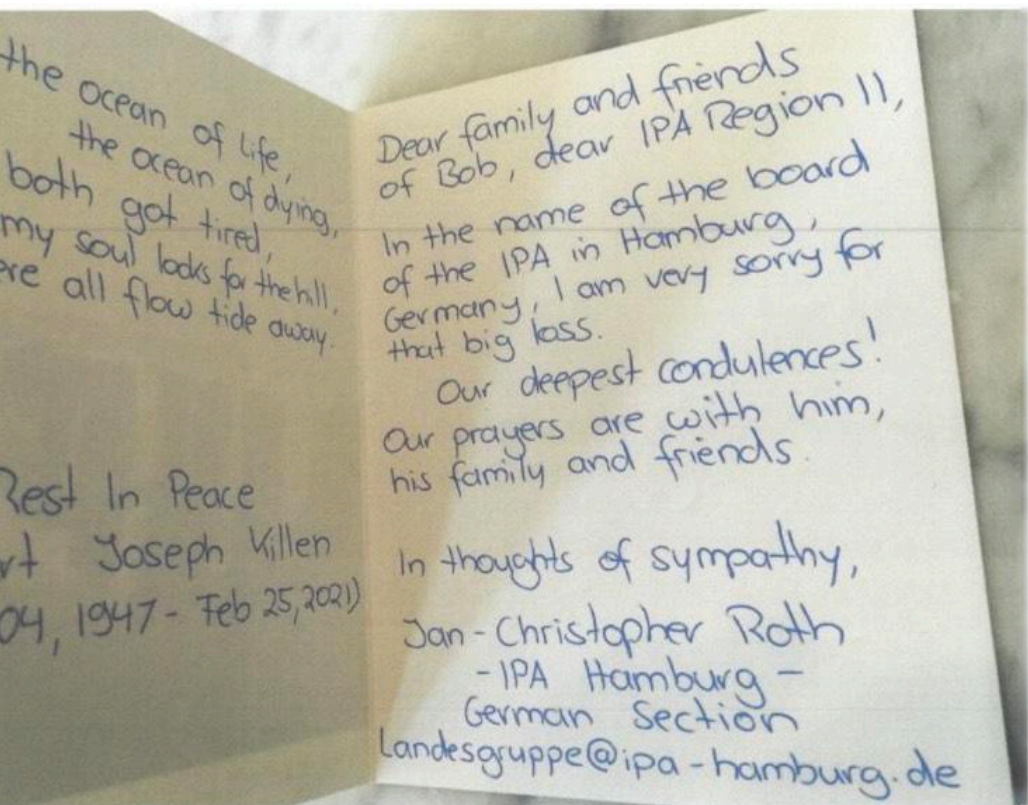 the ocean of life,
the ocean of dying,
both got tired,
my soul looks for the hill,
ere all flow tide away.
Rest In Peace
rt Joseph Killen
04, 1947 - Feb 25, 2021)
Dear family and friends
of Bob, dear IPA Region 11,
In the name of the board
of the IPA in Hamburg,
Germany, I am very sorry for
that big loss.
Our deepest condulences!
Our prayers are with him,
his family and friends.
In thoughts of sympathy,
Jan-Christopher Roth
- IPA Hamburg -
German Section
Landesgruppe@ipa-hamburg.de